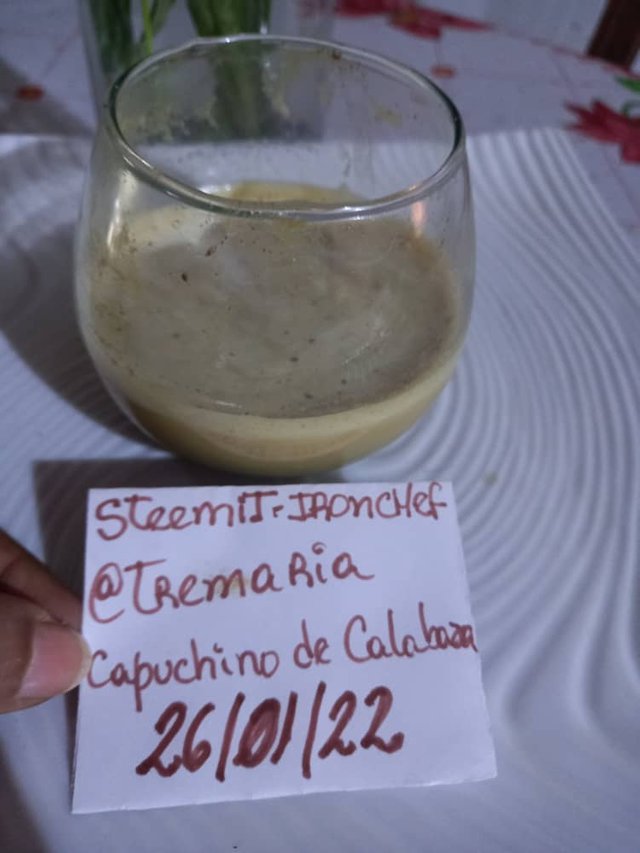 SteemIT-IRONCHEF
@TREMARia
Capuchino de Calabaza
26/01/22